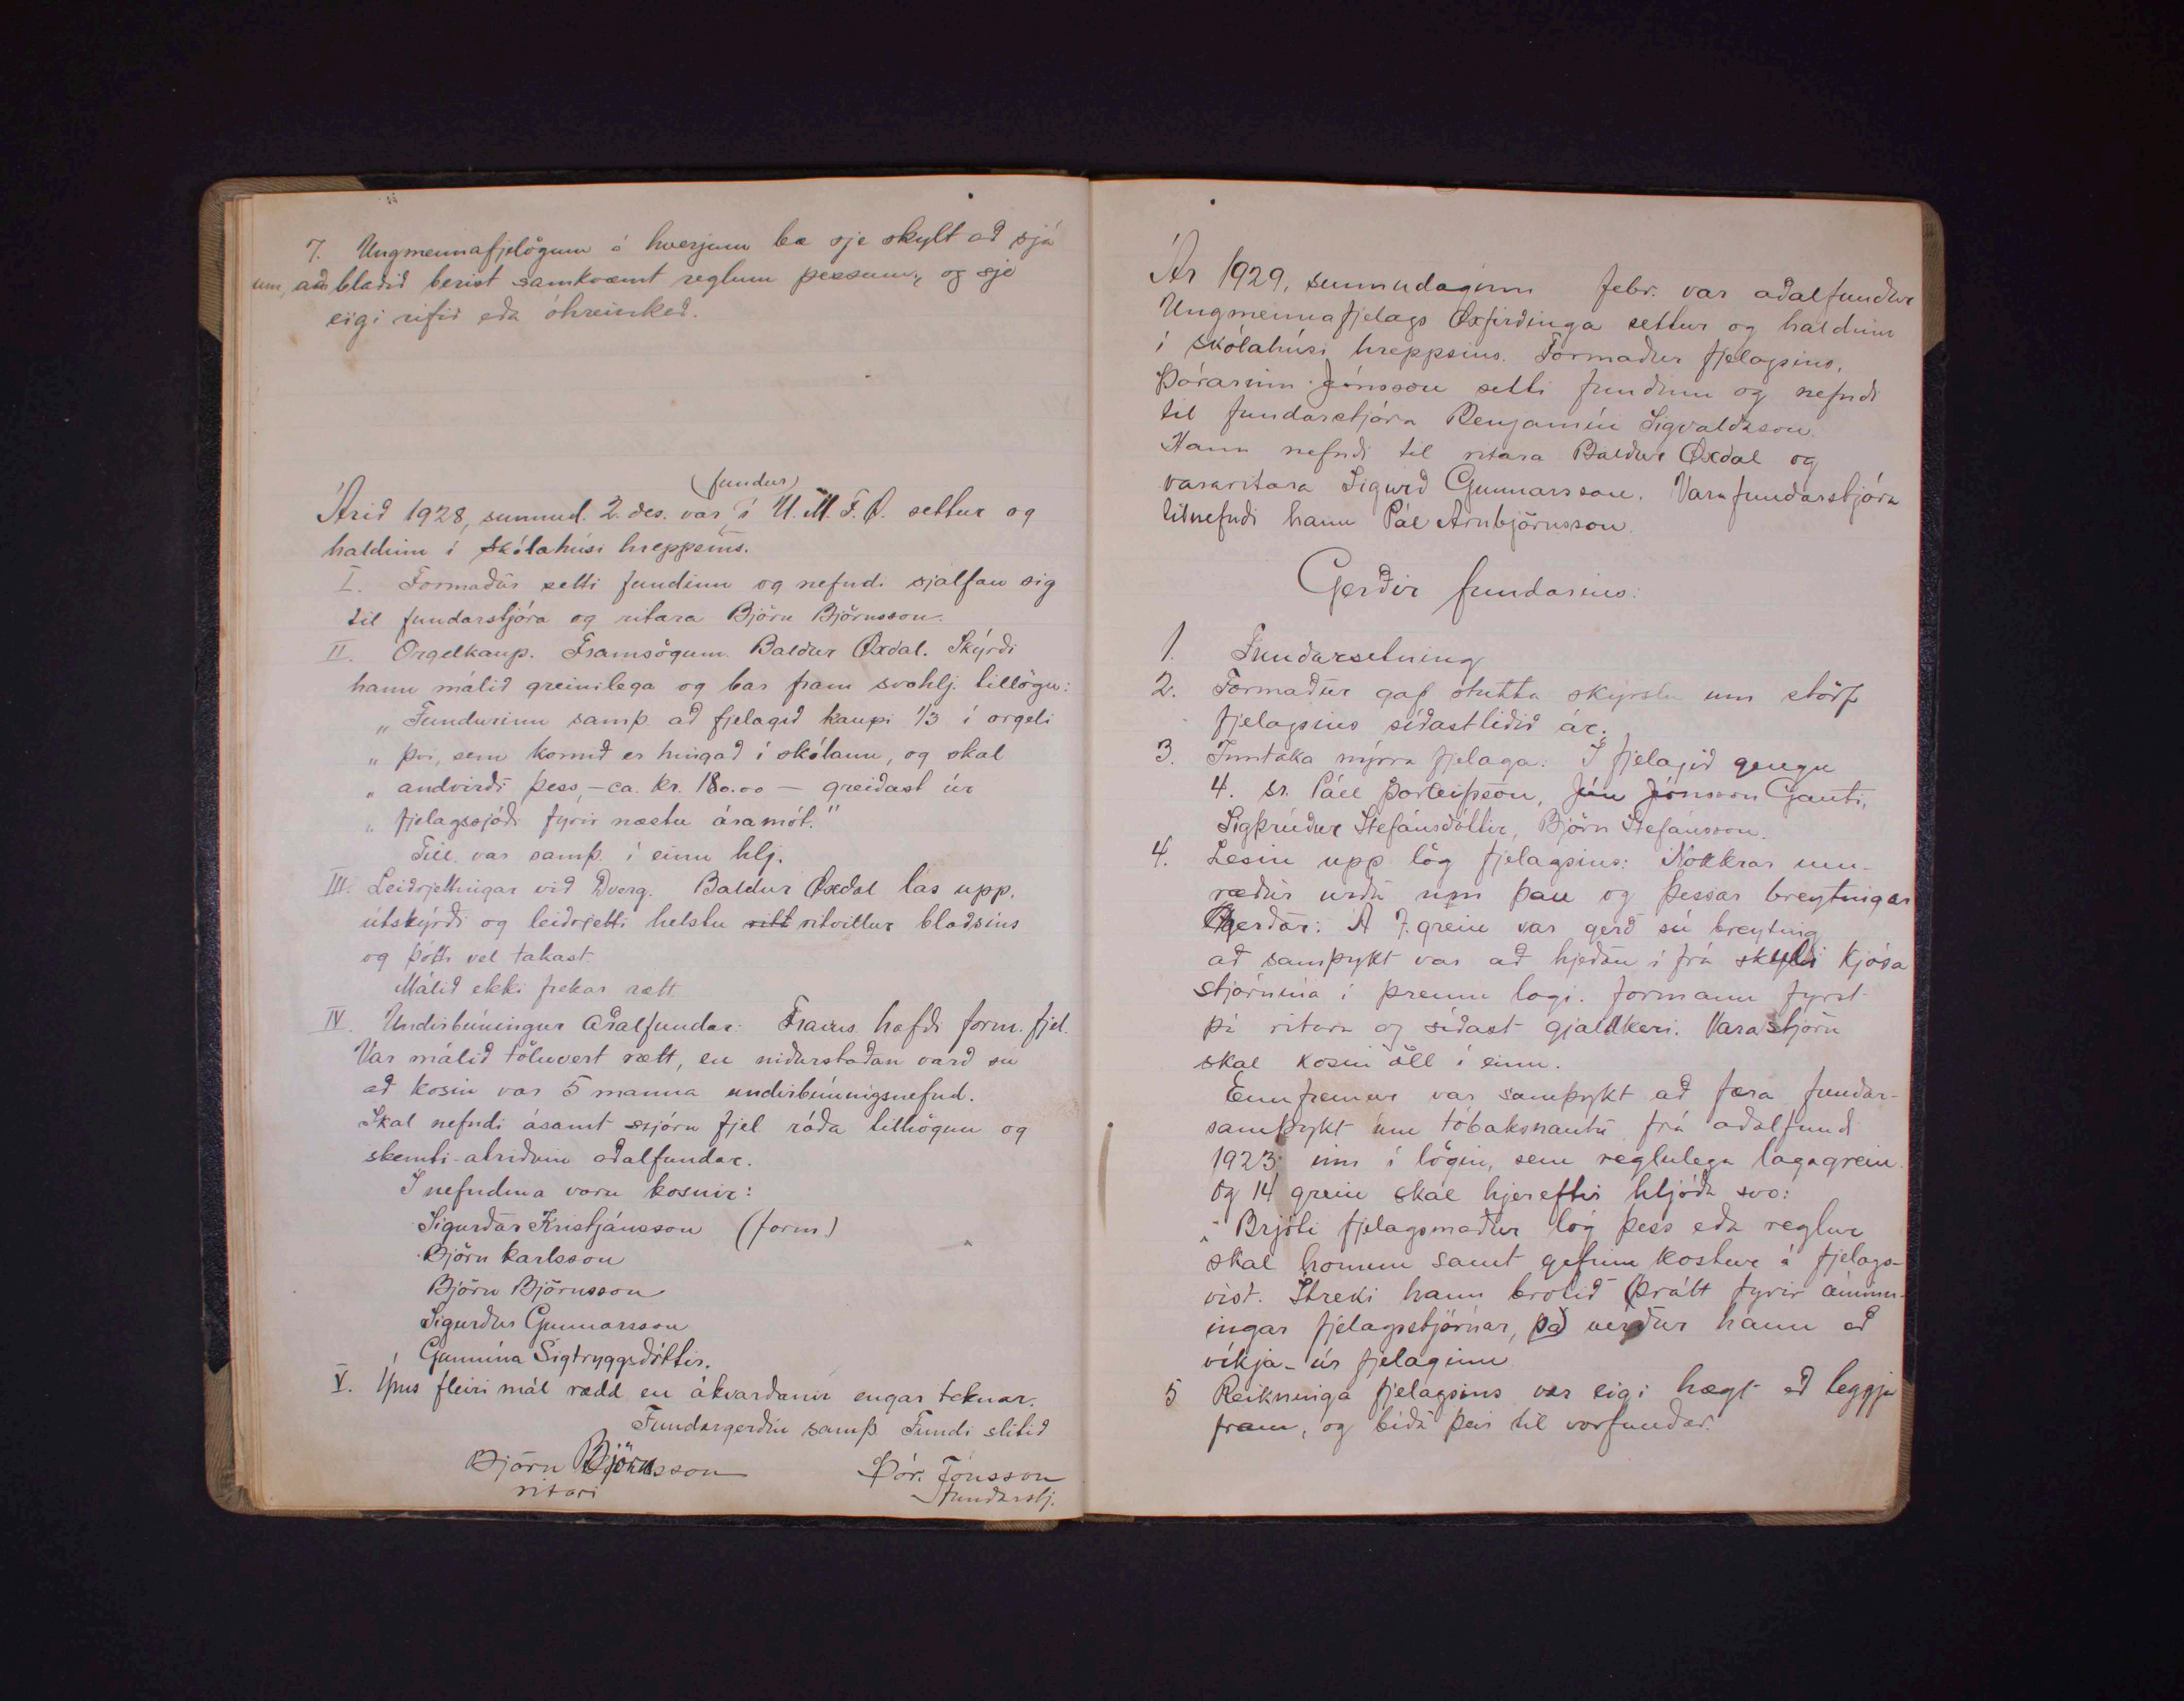 7. Ungmennafjelögum á hverjum bæ sje skylt að sjá
um, að blaðið berist samkvæmt reglum þessum, og sje
eigi rifið eða óhreinkað.
(fundur)
Árið 1928, sunnud. 2. des. var í U.M.F.Ö. settur og
haldinn í skólahúsi hreppsins.
I. Formaður setti fundinn og nefndi sjálfan sig
til fundarstjóra og ritara Björn Björnsson.
II. Orgelkaup. Framsögum. Baldur Öxdal. Skýrði
hann málið greinilega og bar fram svohlj. tillögu:
„Fundurinn samþ. að fjelagið kaupi 1/3 í orgeli
„ því, sem komið er hingað í skólann, og skal
„ andvirði þess, - ca. kr. 180.00 - greiðast úr
„ fjelagssjóði fyrir næstu áramót."
Till. var samþ. í einu hlj.
III. Leiðrjettingar við Dverg. Baldur Öxdal las upp,
útskýrði og leiðrjetti helstu ritt ritvillur blaðsins
og þótti vel takast.
Málið ekki frekar rætt.
IV. Undirbúningur aðalfundar: Frams. hafði form. fjel.
Var málið töluvert rætt, en niðurstaðan varð sú
að kosin var 5 manna undirbúningsnefnd.
Skal nefndi ásamt stjórn fjel ráða tilhögun og
skemti-atriðum aðalfundar.
Í nefndina voru kosnir:
Sigurður Kristjánsson (form)
Björn Karlsson
Björn Björnsson
Sigurður Gunnarsson
Gunnína Sigtryggsdóttir.
V. Ýms fleiri mál rædd en ákvarðanir engar teknar.
Fundargerðin samþ Fundi slitið
Björn Björnsson Þór. Jónsson
ritari fundarstj.
Ár 1929, sunnudaginn febr. var aðalfundur
Ungmennafjelags Öxfirðinga settur og haldinn
í skólahúsi hreppsins. Formaður fjelagsins,
Þórarinn Jónsson setti fundinn og nefndi
til fundarstjóra Benjamín Sigvaldason.
Hann nefndi til ritara Baldur Öxdal og
vararitara Sigurð Gunnarsson. Varafundarstjóra
tilnefndi hann Pál Arnbjörnsson.
Gerðir fundarins:
1. Fundarsetning
2. Formaður gaf stutta skýrslu um störf
fjelagsins síðastliðið ár.
3. Inntaka nýrra fjelaga: Í fjelagið gengu
4. sr. Páll Þorleifsson, Jón Jónsson Gauti,
Sigþrúður Stefánsdóttir, Björn Stefánsson.
4. Lesin upp lög fjelagsins: Nokkrar um-
ræður urðu um þau og þessar breytingar
gerðar: Á 7. grein var gerð sú breyting
að samþykt var að hjeðan í frá skyldi kjósa
stjórnina í þrennu lagi. formann fyrst
þá ritara og síðast gjaldkeri. Varastjórn
skal kosin öll í einu.
Ennfremur var samþykt að færa fundar-
samþykt um tóbaksnautn frá aðalfund
1923 inn í lögin, sem reglulega lagagrein.
Og 14 grein skal hjereftir hljóða svo:
„Brjóti fjelagsmaður lög þess eða reglur
skal honum samt gefinn kostur á fjelags-
vist. Ítreki hann brotið þrátt fyrir áminn-
ingar fjelagsstjórnar, þá verður hann að
víkja úr fjelaginu
5 Reikninga fjelagsins var eigi hægt að leggja
fram, og bíða þeir til vorfundar.